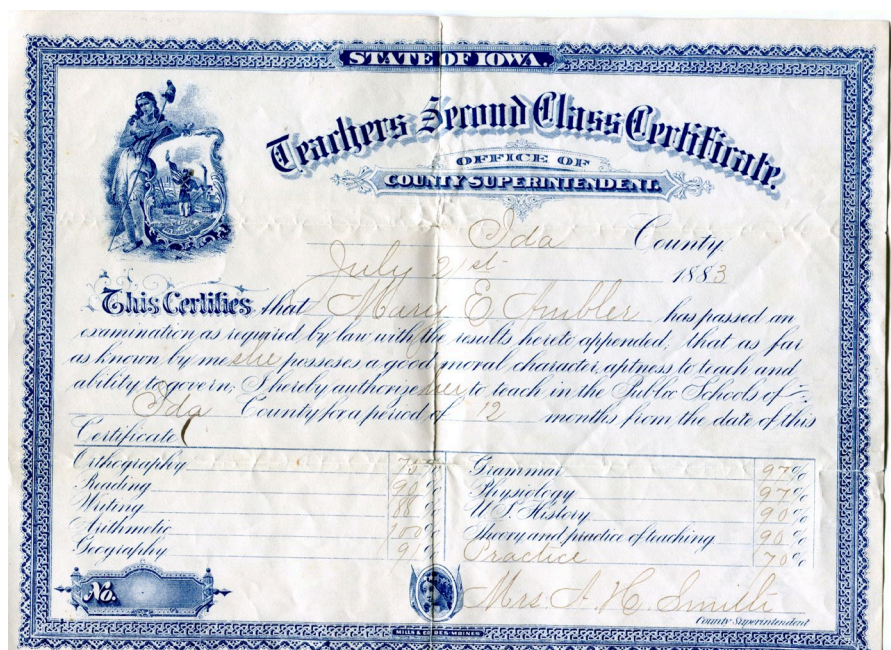 STATE OF IOWA.
Teachers Second Class Certificate.
OFFICE OF
COUNTY SUPERINTENDENT.
Ida County
July 21st 1883
This Certifies that Mary E Ambler has passed an
examination as required by law with the results hereto appended, that as far
as known by me she posseses a good moral character, aptness to teach and
ability to govern; I hereby authorize her to teach in the Public Schools of
Ida County for a period of 12 months from the date of this
Certificate
Orthography 75% Grammar 97%
Reading 90% Physiology 97%
Writing 88% U.S. History 90%
Arithmetic 100% Theory and practice of teaching 90%
Geography 91% Practice 70%
No. Mrs. A. H. Smith
County Superintendent
MILLS & CO DES MOINES